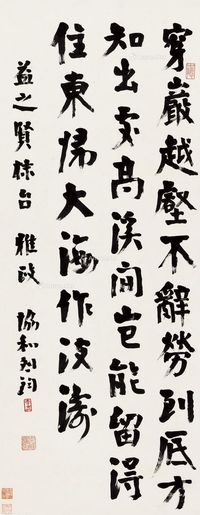 穿巖越壑不辭勞到底方
知出處高溪間豈能留得
住東歸大海作波濤
益之賢棣台 雅政 協和烈鈞